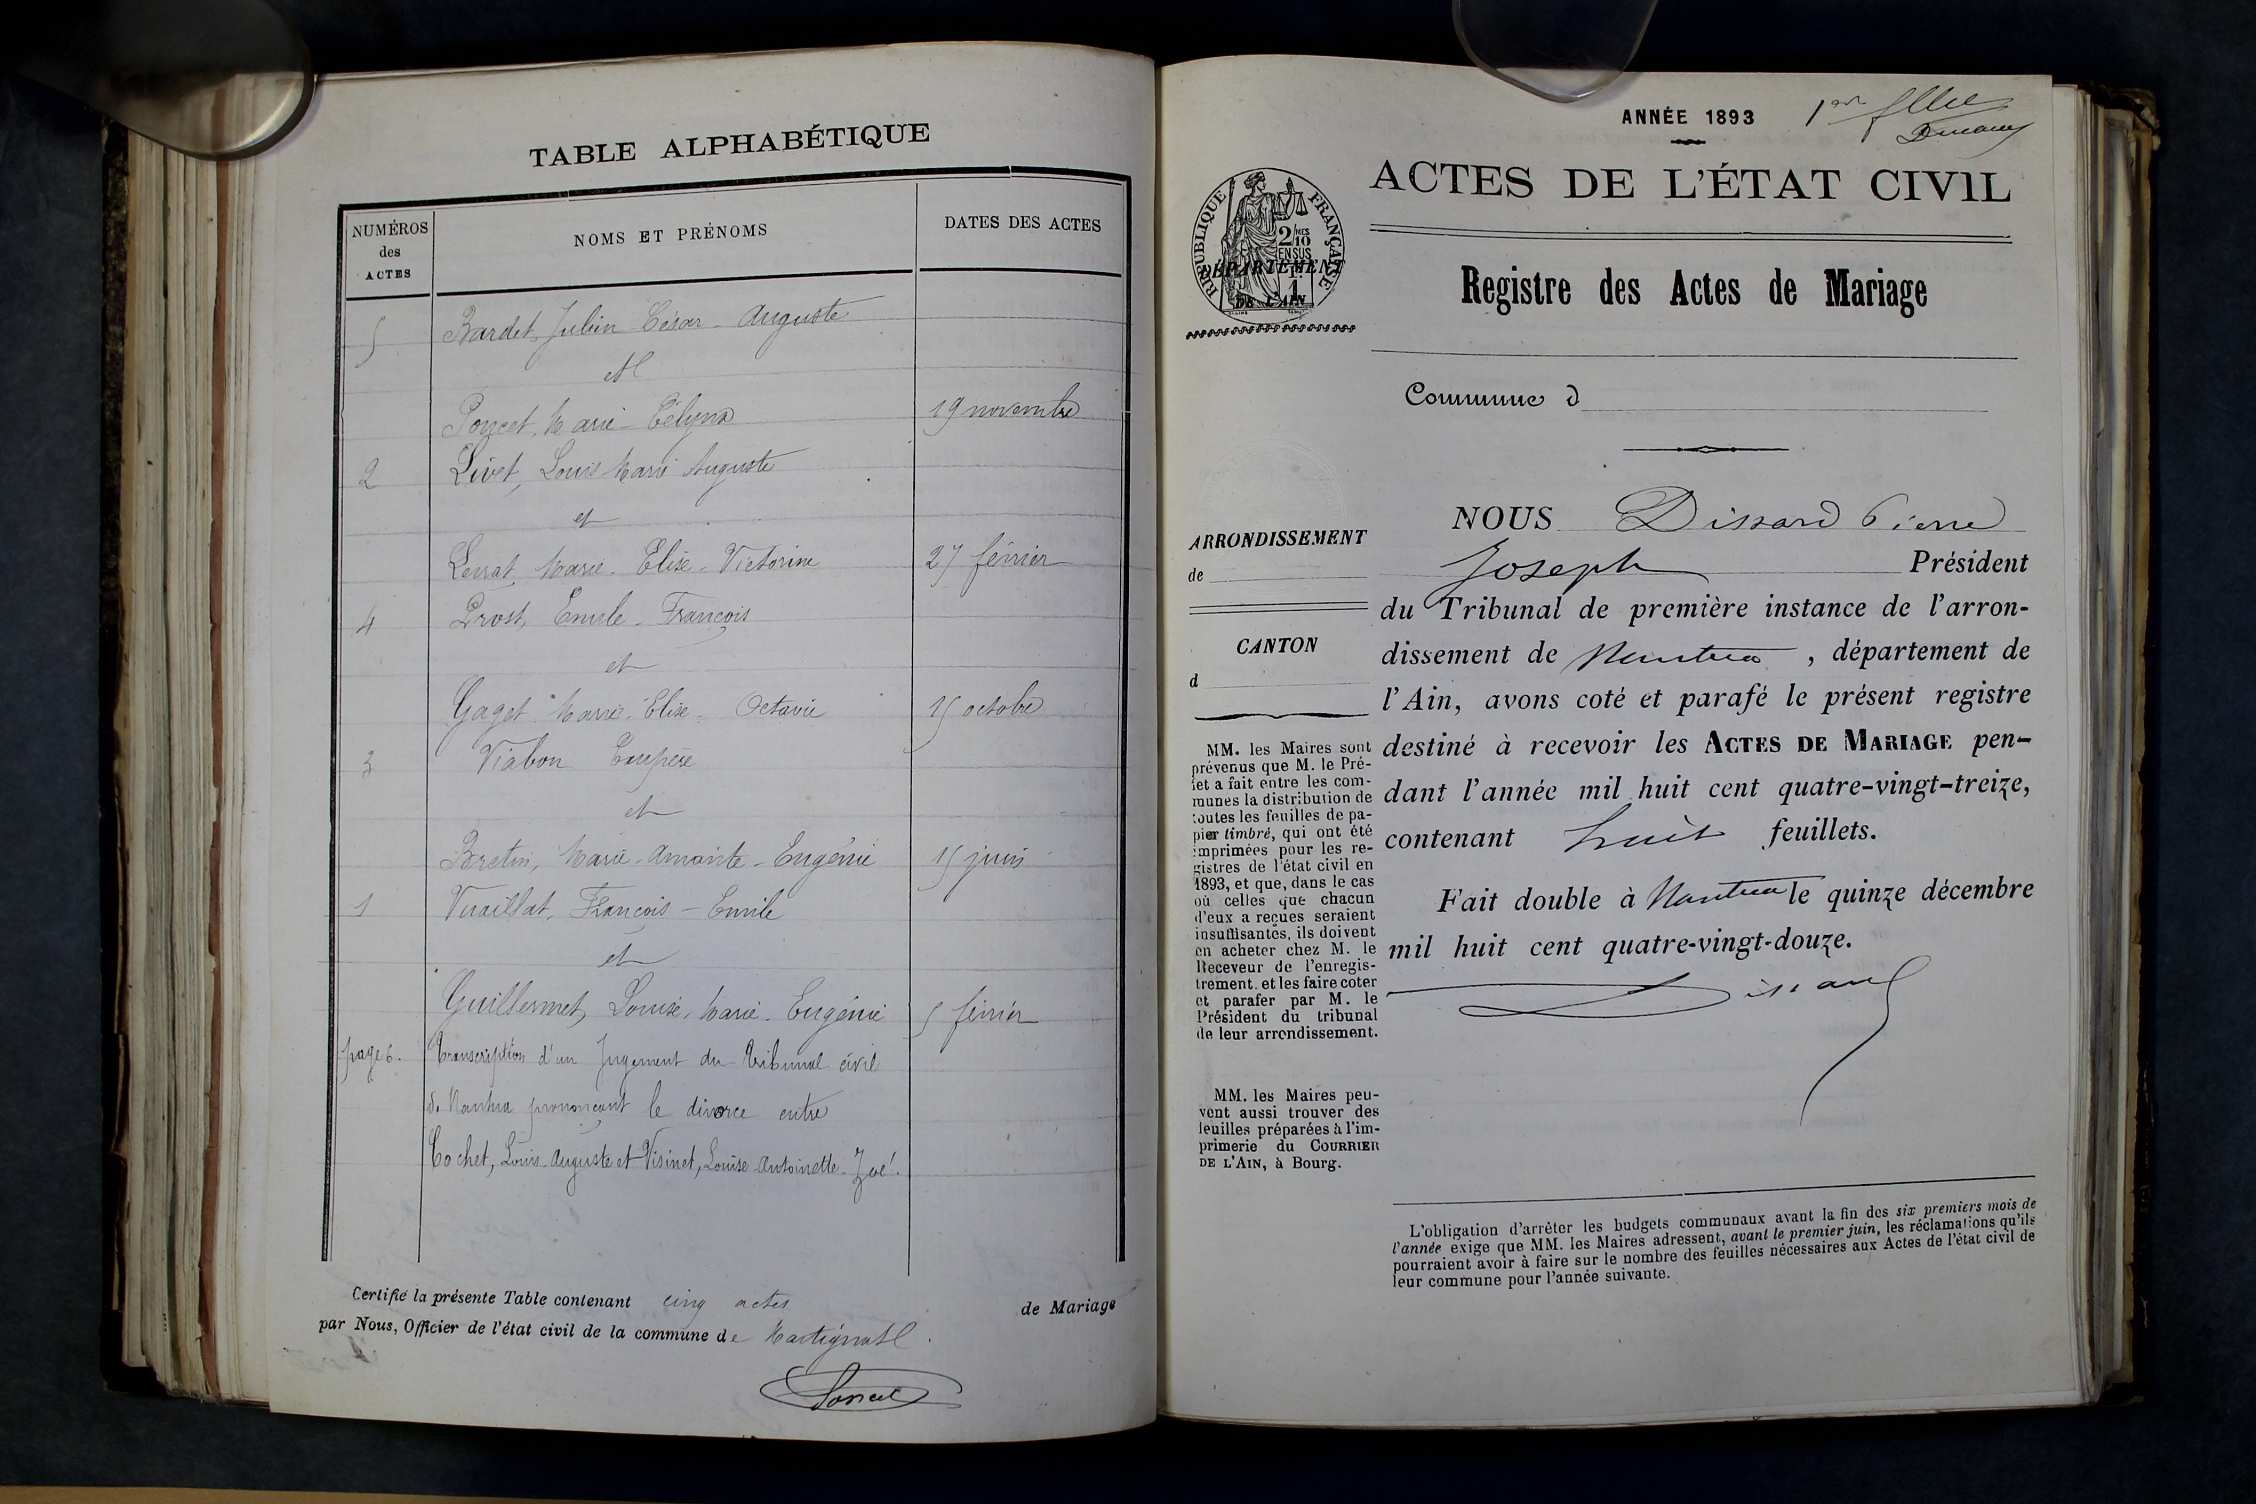 TABLE ALPHABÉTIQUE
NUMÉROS des ACTES
NOMS ET PRÉNOMS
DATES DES ACTES
5 Bardet, Julien César-Auguste
et
Poncet, Marie-Célyna 19 novembre
2 Livet, Louis Marie Auguste
et
Lerrat, Marie-Elise-Victorine 27 février
4 Prost, Emile-François
et
Gaget Marie-Elise-Octavie 15 octobre
3 Viabon
et
Bretin, Marie-Amante-Eugénie 15 juin
1 Vuaillat, François-Emile
et
Guillermet, Louise, Marie-Eugénie 5 février
page 6. Transcription d'un Jugement du Tribunal civil
de Nantua prononçant le divorce entre
Cochet, Louis-Auguste et Visinet, Louise-Antoinette-Zoé.
Certifié la présente Table contenant cinq actes de Mariage
par Nous, Officier de l'état civil de la commune de Martignat.
Poncet
ANNÉE 1893
1er
ACTES DE L'ÉTAT CIVIL
RÉPUBLIQUE FRANÇAISE
2/10 EN SUS
DÉPARTEMENT
DE L'AIN
Registre des Actes de Mariage
Commune d
ARRONDISSEMENT
de
CANTON
d
MM. les Maires sont
prévenus que M. le Pré-
fet a fait entre les com-
munes la distribution de
toutes les feuilles de pa-
pier timbré, qui ont été
imprimées pour les re-
gistres de l'état civil en
1893, et que, dans le cas
où celles que chacun
d'eux a reçues seraient
insuffisantes, ils doivent
en acheter chez M. le
Receveur de l'enregis-
trement. et les faire coter
et parafer par M. le
Président du tribunal
de leur arrondissement.
MM. les Maires peu-
vent aussi trouver des
feuilles préparées à l'im-
primerie du COURRIER
DE L'AIN, à Bourg.
NOUS Dissard Pierre
Joseph Président
du Tribunal de première instance de l'arron-
dissement de Nantua, département de
l'Ain, avons coté et parafé le présent registre
destiné à recevoir les ACTES DE MARIAGE pen-
dant l'année mil huit cent quatre-vingt-treize,
contenant huit feuillets.
Fait double à Nantua le quinze décembre
mil huit cent quatre-vingt-douze.
Dissard
L'obligation d'arrêter les budgets communaux avant la fin des six premiers mois de
l'année exige que MM. les Maires adressent, avant le premier juin, les réclamations qu'ils
pourraient avoir à faire sur le nombre des feuilles nécessaires aux Actes de l'état civil de
leur commune pour l'année suivante.